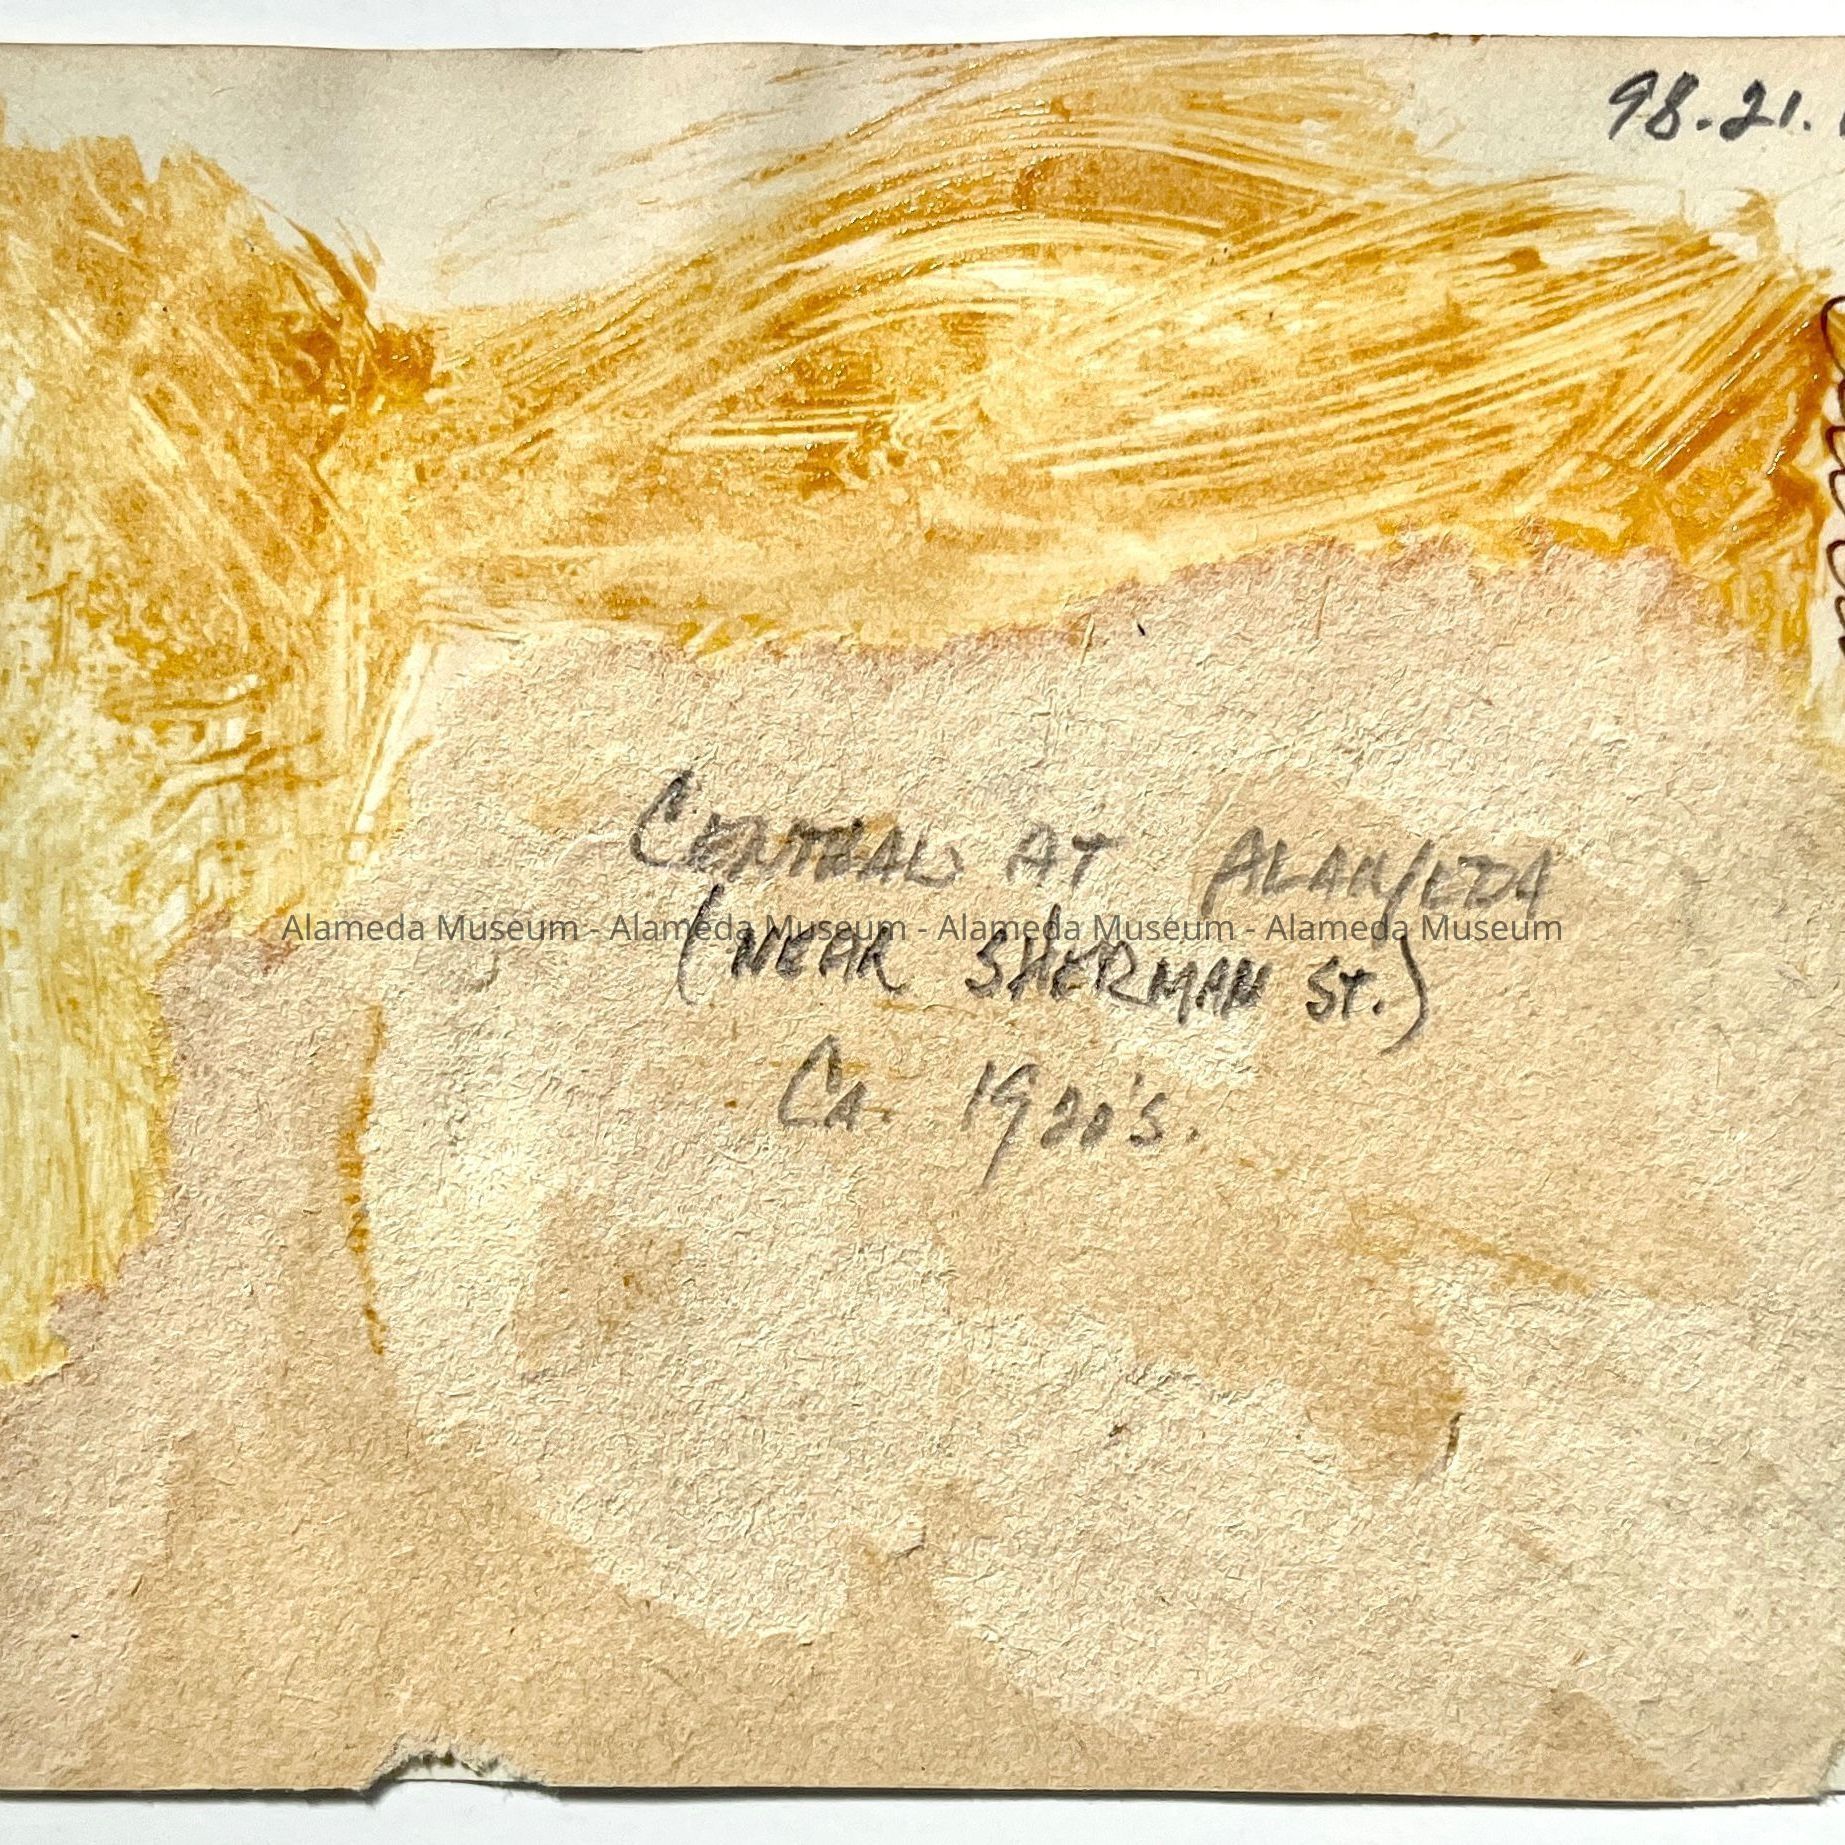 98.21.
CENTRAL AT ALAMEDA
Alameda Museum - Alameda Museum - Alameda Museum - Alameda Museum
(NEAR SHERMAN ST.)
Ca. 1920's.